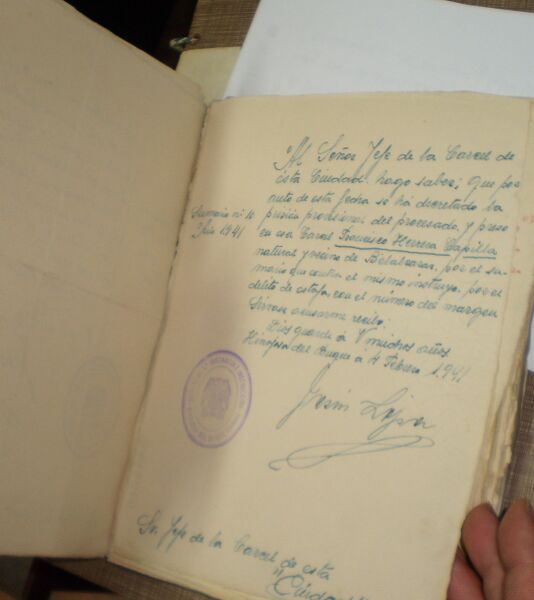 "Al Señor Jefe de la Carcel de
ésta Ciudad: hago saber; que por
auto de esta fecha se há decretado la
Sumario nº 10
Año 1941
prisión provisional del procesado, y preso
en esa Carcel Francisco Herrera Capilla
natural y vecino de Belalcazar, por el su-
mario que contra el mismo instruyo, por el
delito de estafa, con el número del margen
Sirvase acusarme recibo:
Dios guarde á V muchos años
Hinojosa del Duque á 4 Febrero 1.941
Sr. Jefe de la Carcel de esta